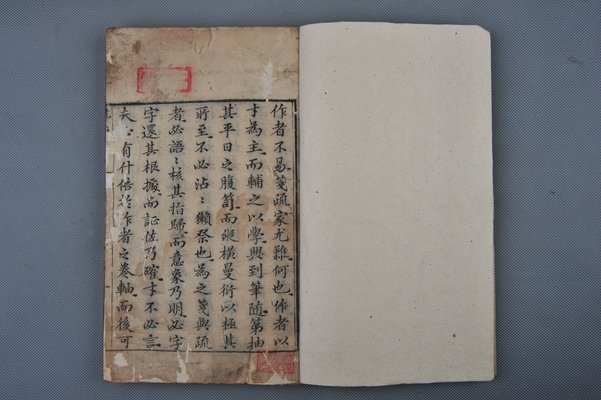 作者不易箋疏家尤難何也作者以
才為主而輔之以學興到筆隨第抽
其平日之腹笥而縱橫曼衍以極其
所至不必沾沾獺祭也為之箋與疏
者必語語核其指歸而意象乃明必字
字還其根據而証佐乃確才不必言
夫必有什倍於作者之卷軸而後可